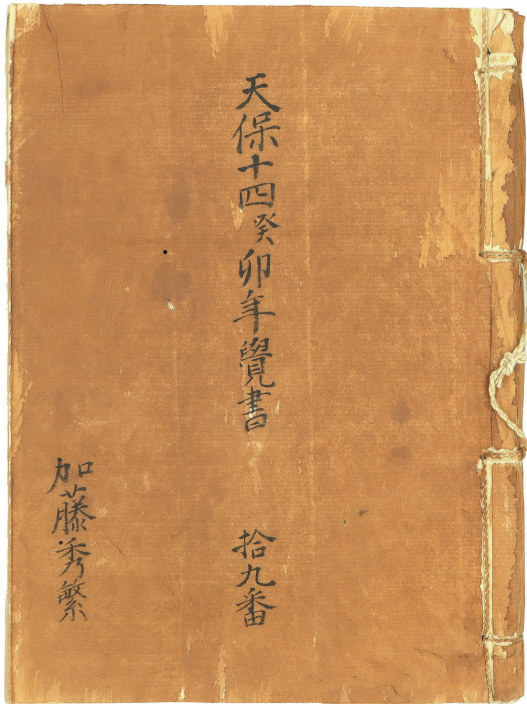 天保十四癸卯年覺書
拾九番
加藤秀繁